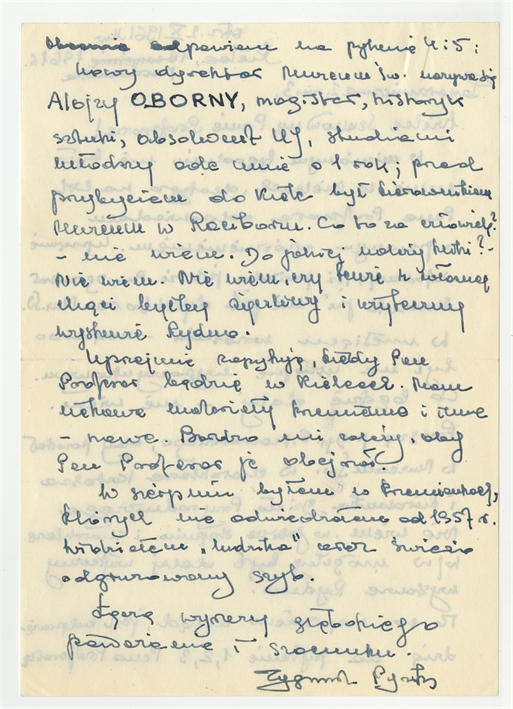 odpowiem na pytanie 4 i 5:
Nowy dyrektor Muzeum Św. nazywa się
Alojzy OBORNY, magister, historyk
sztuki, absolwent UJ, studiami
młodszy ode mnie o 1 rok; przed
przybyciem do Kielc był kierownikiem
Muzeum w Raciborzu. Co to za człowiek?
- nie wiem. Do jakiej
Nie wiem. Nie wiem, czy
i
Rydno.
Uprzejmie zapytuję, kiedy Pan
Profesor będzie w Kielcach. Mam
ciekawe materiały krzemienne i inne
- nowe. Bardzo mi zależy, aby
Pan Profesor je obejrzał.
W sierpniu byłem w
których nie odwiedzałem od 1957 r.
"ludzika" oraz świeżo
odgruzowany szyb.
Łączę wyrazy głębokiego
poważania i szacunku.
Zygmunt